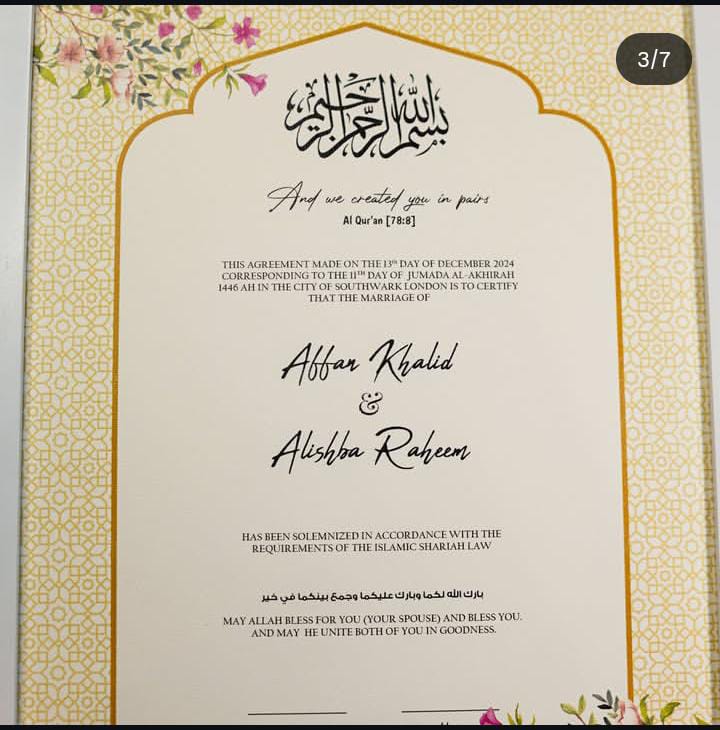 3/7
بسم الله الرحمن الرحيم
And we created you in pairs
Al Qur'an [78:8]
THIS AGREEMENT MADE ON THE 13th DAY OF DECEMBER 2024
CORRESPONDING TO THE 11TH DAY OF JUMADA AL-AKHIRAH
1446 AH IN THE CITY OF SOUTHWARK LONDON IS TO CERTIFY
THAT THE MARRIAGE OF
Affan Khalid
&
Alishba Raheem
HAS BEEN SOLEMNIZED IN ACCORDANCE WITH THE
REQUIREMENTS OF THE ISLAMIC SHARIAH LAW
بارك الله لكما وبارك عليكما وجمع بينكما في خير
MAY ALLAH BLESS FOR YOU (YOUR SPOUSE) AND BLESS YOU.
AND MAY HE UNITE BOTH OF YOU IN GOODNESS.